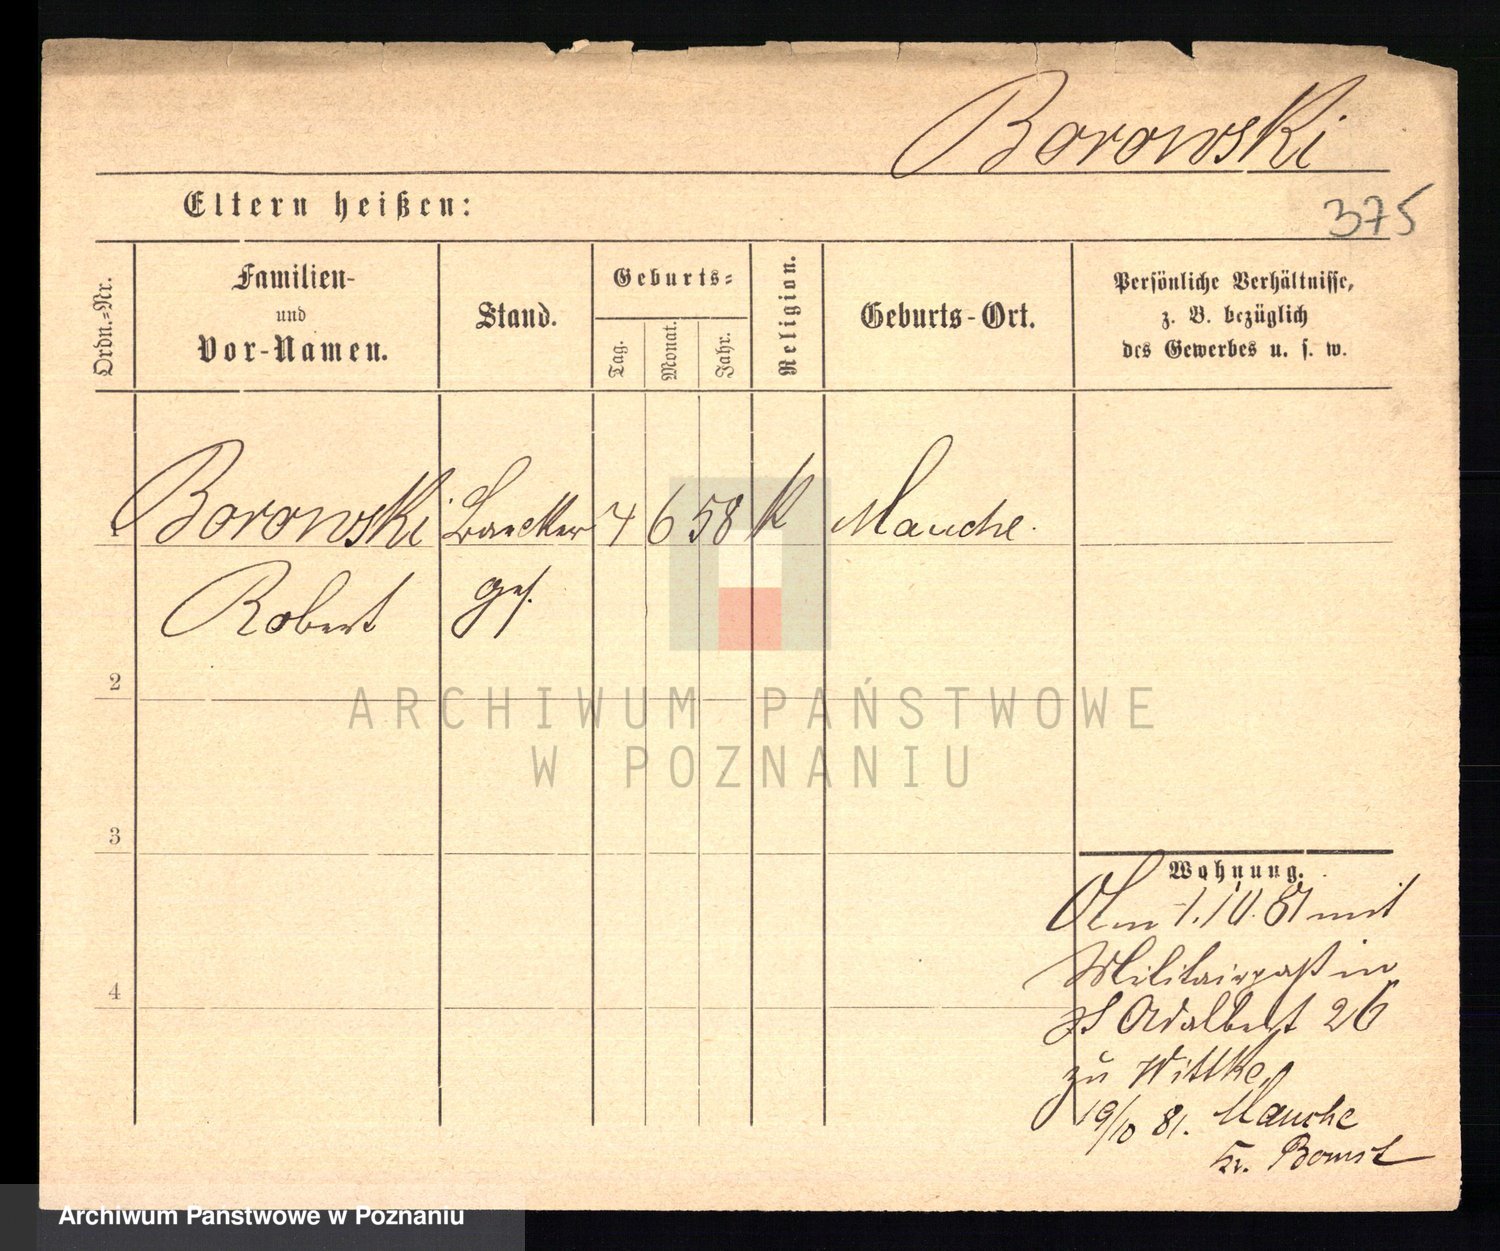 Borowski
Eltern heißen:
375
Ordn.=Nr.
Familien-
und
Vor-Namen.
Stand.
Geburts=
Tag.
Monat.
Jahr.
Religion.
Geburts-Ort.
Persönliche Verhältnisse,
z. B. bezüglich
des Gewerbes u. s. w.
1 Borowski Baecker 4 6 58 K Mauche.
Robert ges.
2
3
4
Wohnung.
Am 1.10.81 mit
Militairpaß in
St Adalbert 26
zu Wittke,
19/10 81. Mauche
Kr. Bomst
ARCHIWUM PAŃSTWOWE
W POZNANIU
Archiwum Państwowe w Poznaniu